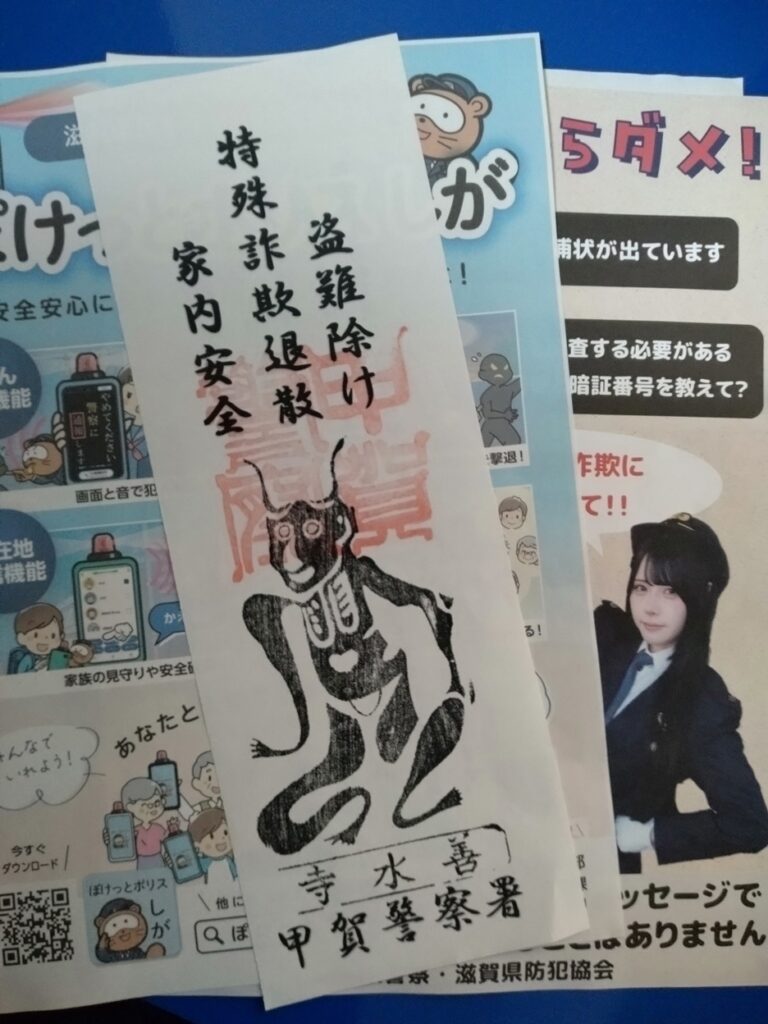 盗難除け
特殊詐欺退散
家内安全
甲賀
警察
善水寺
甲賀警察署
滋
ぽけっ
が
安全安心に
ん
機能
やめてください
警察に
通報
します
画面と音で犯
在地
機能
家族の見守りや安全確
んなで
いれよう!
あなたと
今すぐ
ダウンロード
ぽけっとポリス
しが
他に
ぽ
撃退!
る!
らダメ!
捕状が出ています
査する必要がある
暗証番号を教えて?
詐欺に
て!!
ッセージで
ことはありません
警察・滋賀県防犯協会